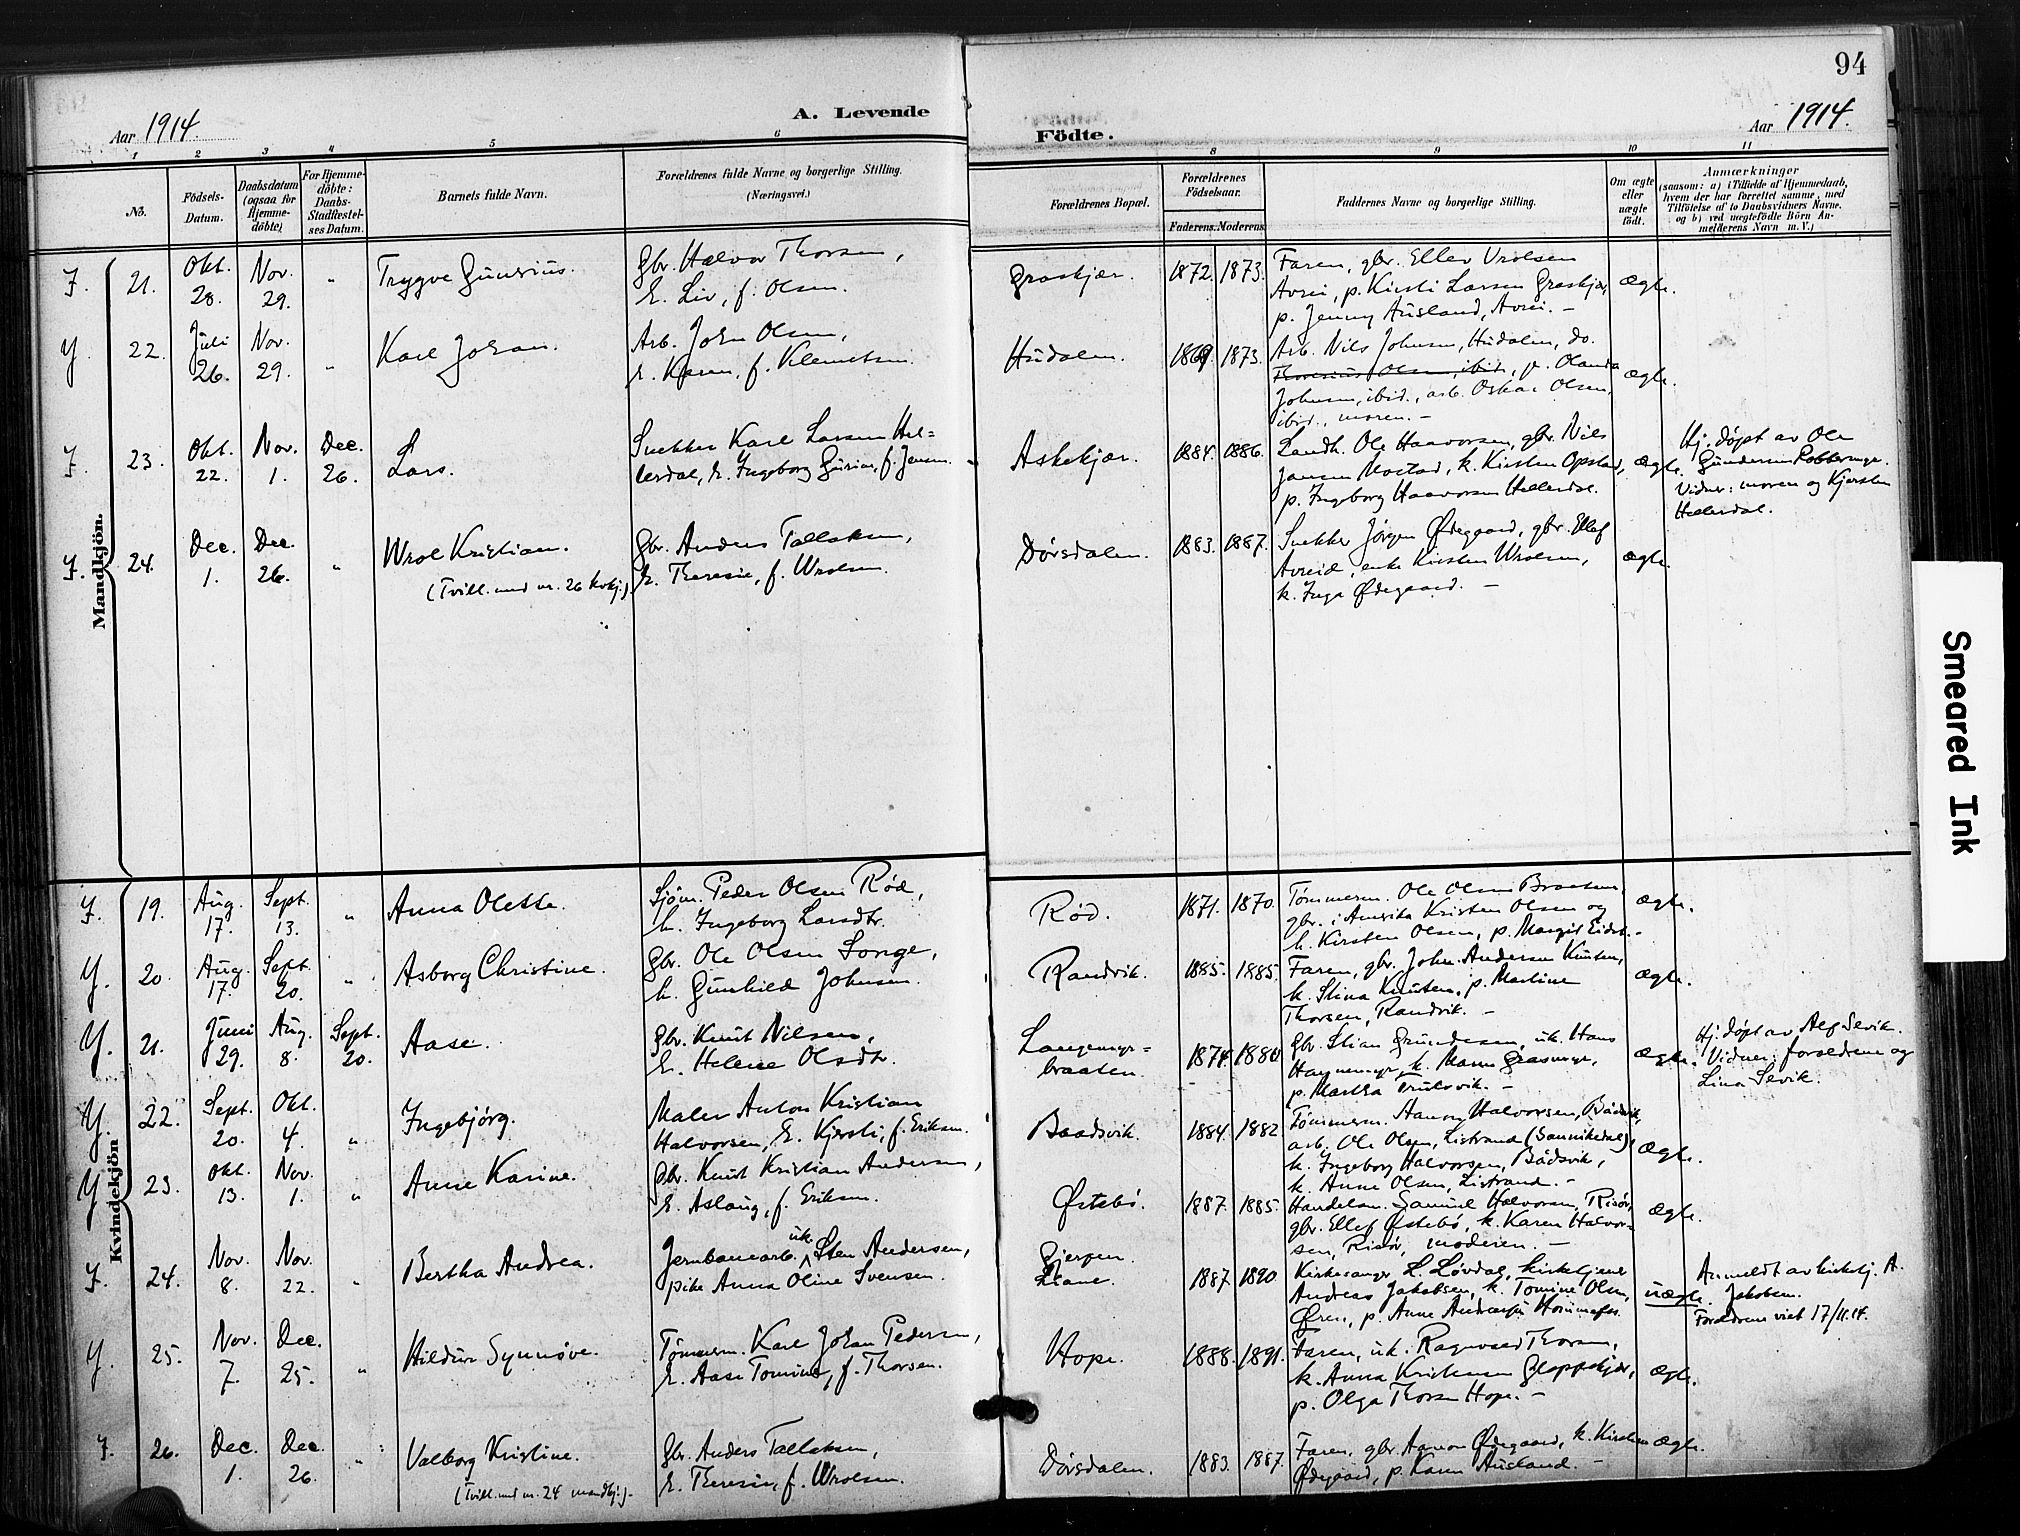 94
Aar 1914.
A. Levende
Födte.
Aar 1914.
1 2 3 4 5 6 8 9 10 11
No.
Födsels-
Datum.
Daabsdatum
(ogsaa for
Hjemme-
döbte)
For Hjemme-
döbte:
Daabs-
Stadfæstel-
ses Datum.
Barnets fulde Navn.
Forældrenes fulde Navne og borgerlige Stilling.
(Næringsvei.)
Forældrenes Bopæl.
Forældrenes
Födselsaar.
Faderens. Moderens.
Faddernes Navne og borgerlige Stilling.
Om ægte
eller
uægte
födt.
Anmærkninger
(saasom: a) i Tilfælde af Hjemmedaab,
hvem der har forrettet samme, med
Tilföielse af to Daabsvidners Navne,
og b) ved uægtefödte Börn An-
melderens Navn m. V.)
Mandkjön.
21. Okt. 28. Nov. 29. "
Trygve Gunerius.
Gbr. Halvor Thorsen,
h. Liv, f. Olsen.
Graskjær. 1872. 1873.
Faren, gbr. Ellev Vrolsen
Avrei, p. Kirsti Larsen Graskjær,
p. Jenny Ausland, Avrei. –
ægte.
22. Juli 26. Nov. 29. "
Karl Johan.
Arb. John Olsen,
h. Karen, f. Klemetsen.
Hudalen. 1869 1873.
Arb. Nils Johnsen, Hudalen, do.
Thoresius Olsen, ibid., p. Olanda
Johnsen, ibid., arb. Oskar Olsen,
ibid., moren. –
ægte.
23. Okt. 22. Nov. 1. Dec. 26.
Lars.
Snekker Karl Larsen Hel-
lersdal, h. Ingeborg Gurine, f. Jensen.
Askekjær. 1884. 1886.
Landh. Ole Haavorsen, gbr. Nils
Jansen Mostad, k. Kirsten Opstad,
p. Ingeborg Haavorsen Hellerdal.
ægte.
Hj. døpt av Ole
Gundersen
Vidner: moren og Kjersten
Hellersdal.
24. Dec. 1. Dec. 26. "
Wrol Kristian.
(Tvill. med nr. 26 kvkj.)
Gbr. Anders Tallaksen,
h. Theresie, f. Wrolsen.
Dørsdalen. 1883. 1887.
Snekker Jörgen Ødegaard, gbr. Ellef
Avreid, enke Kirsten Wrolsen,
k. Inga Ødegaard. –
ægte.
Kvindekjön
19. Aug. 17. Sept. 13. "
Anna Olette.
Sjöm. Peder Olsen Röd,
h. Ingeborg Larsdtr.
Röd. 1871. 1870.
Tømmerm. Ole Olsen Braaten,
gbr. i Amerika Kristen Olsen og
h. Kirsten Olsen, p. Margit Eidet. –
ægte.
20. Aug. 17. Sept. 20. "
Asborg Christine.
Gbr. Ole Olsen Songe,
h. Gunhild Johnsen.
Randvik. 1885. 1885.
Faren, gbr. John Andersen Knuten,
k. Stina Knuten, p. Martine
Thorsen, Randvik. –
ægte.
21. Juni 29. Aug. 8. Sept. 20.
Aase.
Gbr. Knut Nilsen,
h. Helene Olsdtr.
Langemyr-
braaten. 1874. 1880
Gbr. Stian Gundersen, uk. Hans
k. Maren Grasmyr,
p. Martha
ægte.
Hj. døpt av Alf Sevik.
Vidner: foreldrene og
Lina Sevik.
22. Sept. 20. Okt. 4. "
Ingebjörg.
Maler Anton Kristian
Halvorsen, h. Kjersti, f. Eriksen.
Baadsvik. 1884. 1882
Tømmerm. Hans Halvorsen, Bådsvik,
arb. Ole Olsen, Listrand (Sannikedal),
k. Ingeborg Halvorsen, Bådsvik,
k. Anne Olsen, Listrand. –
ægte.
23. Okt. 13. Nov. 1. "
Anne Karine.
Gbr. Knut Kristian Andersen,
h. Aslaug, f. Eriksen.
Østebö. 1887. 1885.
Handelsm. Samuel Halvorsen, Risör,
gbr. Ellef Østebö, k. Karen Halvor-
sen, Risör, moderen. –
ægte.
24. Nov. 8. Nov. 22. "
Bertha Andrea.
Jernbanearb. uk. Sten Andersen,
pike Anna Oline Svensen.
Gjerpen.
Liane. 1887. 1890.
Kirkesanger L. Løvdal, kirketjener
Andreas Jakobsen, k. Tomine Olsen,
Øren, p. Anne Andrea
uægte.
Anmeldt av kirketj. A.
Jakobsen.
Foreldrene viet 17/11.14.
25. Nov. 7. Dec. 25. "
Hildur Synnøve.
Tømmerm. Karl Johan Pedersen,
h. Aase Tomine, f. Thorsen.
Hope. 1888. 1891.
Faren, uk. Ragnvald Thorsen,
k. Anna Kristensen
p. Olga Thorsen Hope. –
ægte.
26. Dec. 1. Dec. 26. "
Valborg Kristine.
(Tvill. med nr. 24 mandkj.) –
Gbr. Anders Tallaksen,
h. Theresie, f. Wrolsen.
Dørsdalen. 1883. 1887.
Faren, gbr. Aanon Ødegaard, k. Kirsten
Ødegaard, p. Karen Ausland. –
ægte.
Smeared Ink